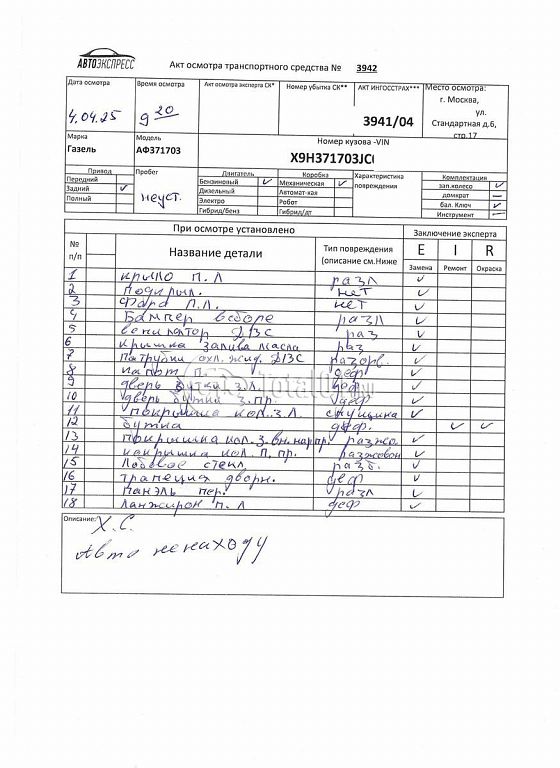 АВТОЭКСПРЕСС
Акт осмотра транспортного средства № 3942
Дата осмотра
4.04.25
Время осмотра
9 20
Акт осмотра эксперта СК*
Номер убытка СК**
АКТ ИНГОССТРАХ***
3941/04
Место осмотра:
г. Москва,
ул.
Стандартная д.6,
стр.17
Марка
Газель
Модель
АФ371703
Номер кузова -VIN
X9H371703JC
Привод
Передний
Задний ✓
Полный
Пробег
неуст.
Двигатель
Бензиновый ✓
Дизельный
Электро
Гибрид/бенз
Коробка
Механическая ✓
Автомат-кая
Робот
Гибрид/дт
Характеристика
повреждения
Комплектация
зап.колесо ✓
домкрат —
бал. Ключ ✓
Инструмент —
При осмотре установлено
Заключение эксперта
№ п/п
Название детали
Тип повреждения
(описание см.Ниже
E I R
Замена Ремонт Окраска
1 крыло П.Л разл ✓
2 Подкрыл. нет ✓
3 Фара П.Л. нет ✓
4 Бампер в сборе разл ✓
5 вентилятор ДВС раз ✓
6 крышка залива масла раз ✓
7 Патрубки охл. жид. ДВС разорв. ✓
8 капот П. деф ✓
9 дверь будки З.Л. деф ✓
10 дверь будки З.Пр. деф ✓
11 Покрышка кол. З.Л ✓
12 будка деф. ✓ ✓
13 Покрышка кол. З. вн. нар пр. ✓
14 покрышка кол. П. пр. ✓
15 Лобовое стекл. разб. ✓
16 трапеция дворн. деф ✓
17 Панэль пер. разл ✓
18 Ланжирон П.Л деф ✓
Описание:
Х.С.
Авто не на ходу